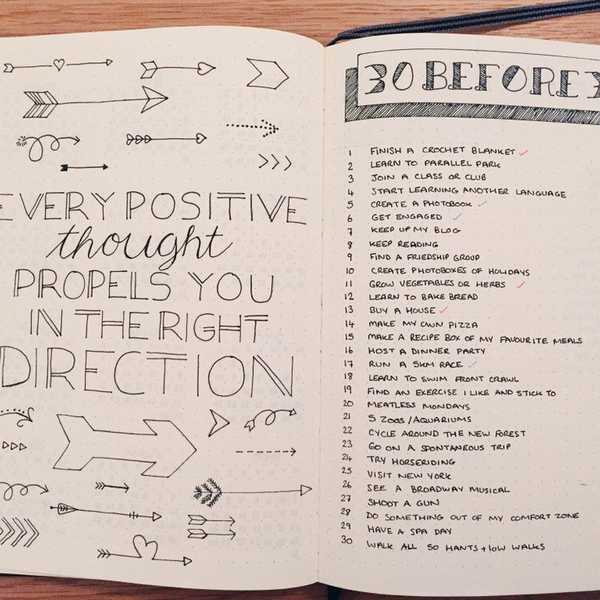 EVERY POSITIVE
thought
PROPELS YOU
IN THE RIGHT
DIRECTION
30 BEFORE 3
1 FINISH A CROCHET BLANKET
2 LEARN TO PARALLEL PARK
3 JOIN A CLASS OR CLUB
4 START LEARNING ANOTHER LANGUAGE
5 CREATE A PHOTOBOOK
6 GET ENGAGED
7 KEEP UP MY BLOG
8 KEEP READING
9 FIND A FRIEDSHIP GROUP
10 CREATE PHOTOBOXES OF HOLIDAYS
11 GROW VEGETABLES OR HERBS
12 LEARN TO BAKE BREAD
13 BUY A HOUSE
14 MAKE MY OWN PIZZA
15 MAKE A RECIPE BOX OF MY FAVOURITE MEALS
16 HOST A DINNER PARTY
17 RUN A 5KM RACE
18 LEARN TO SWIM FRONT CRAWL
19 FIND AN EXERCISE I LIKE AND STICK TO
20 MEATLESS MONDAYS
21 5 ZOOS/AQUARIUMS
22 CYCLE AROUND THE NEW FOREST
23 GO ON A SPONTANEOUS TRIP
24 TRY HORSERIDING
25 VISIT NEW YORK
26 SEE A BROADWAY MUSICAL
27 SHOOT A GUN
28 DO SOMETHING OUT OF MY COMFORT ZONE
29 HAVE A SPA DAY
30 WALK ALL 50 HANTS + IOW WALKS